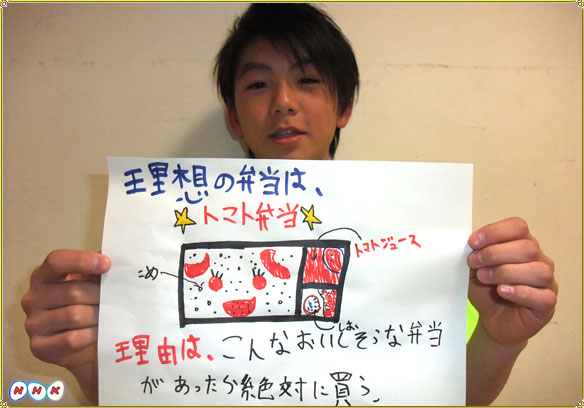 理想の弁当は、
トマト弁当
トマトジュース
こめ
しば
理由は、こんなおいしそうな弁当
があったら絶対に買う。
NHK